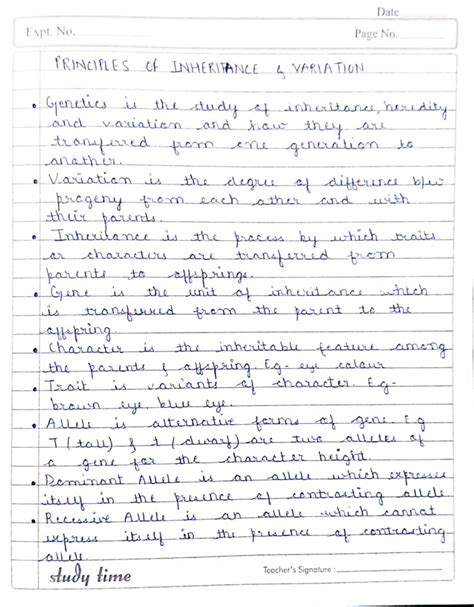 Date
Expt. No.
Page No.
PRINCIPLES OF INHERITANCE & VARIATION
• Genetics is the study of inheritance, heredity
and variation and how they are
transferred from one generation to
another.
• Variation is the degree of difference b/w
progeny from each other and with
their parents.
• Inheritance is the process by which traits
or characters are transferred from
parents to offsprings.
• Gene is the unit of inheritance which
is transferred from the parent to the
offspring.
• Character is the inheritable feature among
the parents & offspring. Eg- eye colour
• Trait is variants of character. Eg-
brown eye, blue eye.
• Allele is alternative forms of gene. Eg
T (tall) & t (dwarf) are two alleles of
a gene for the character height.
• Dominant Allele is an allele which expresses
itself in the presence of contrasting allele
• Recessive Allele is an allele which cannot
express itself in the presence of contrasting
allele.
study time
Teacher's Signature :